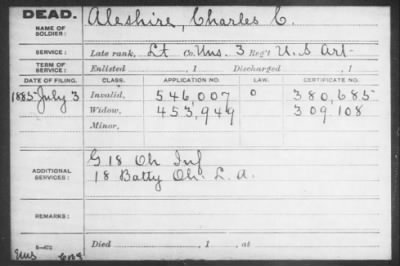 DEAD.
NAME OF SOLDIER:
Aleshire, Charles C.
SERVICE:
Late rank, Lt Co. Uns. 3 Reg't U.S Art-
TERM OF SERVICE:
Enlisted , 1 Discharged , 1
DATE OF FILING. CLASS. APPLICATION NO. LAW. CERTIFICATE NO.
1885 July 3 Invalid, 546,007 0 380,685
Widow, 453,949 309,108
Minor,
ADDITIONAL SERVICES:
G 18 Oh Inf
18 Batty Oh. L. A.
REMARKS:
Died , 1 , at